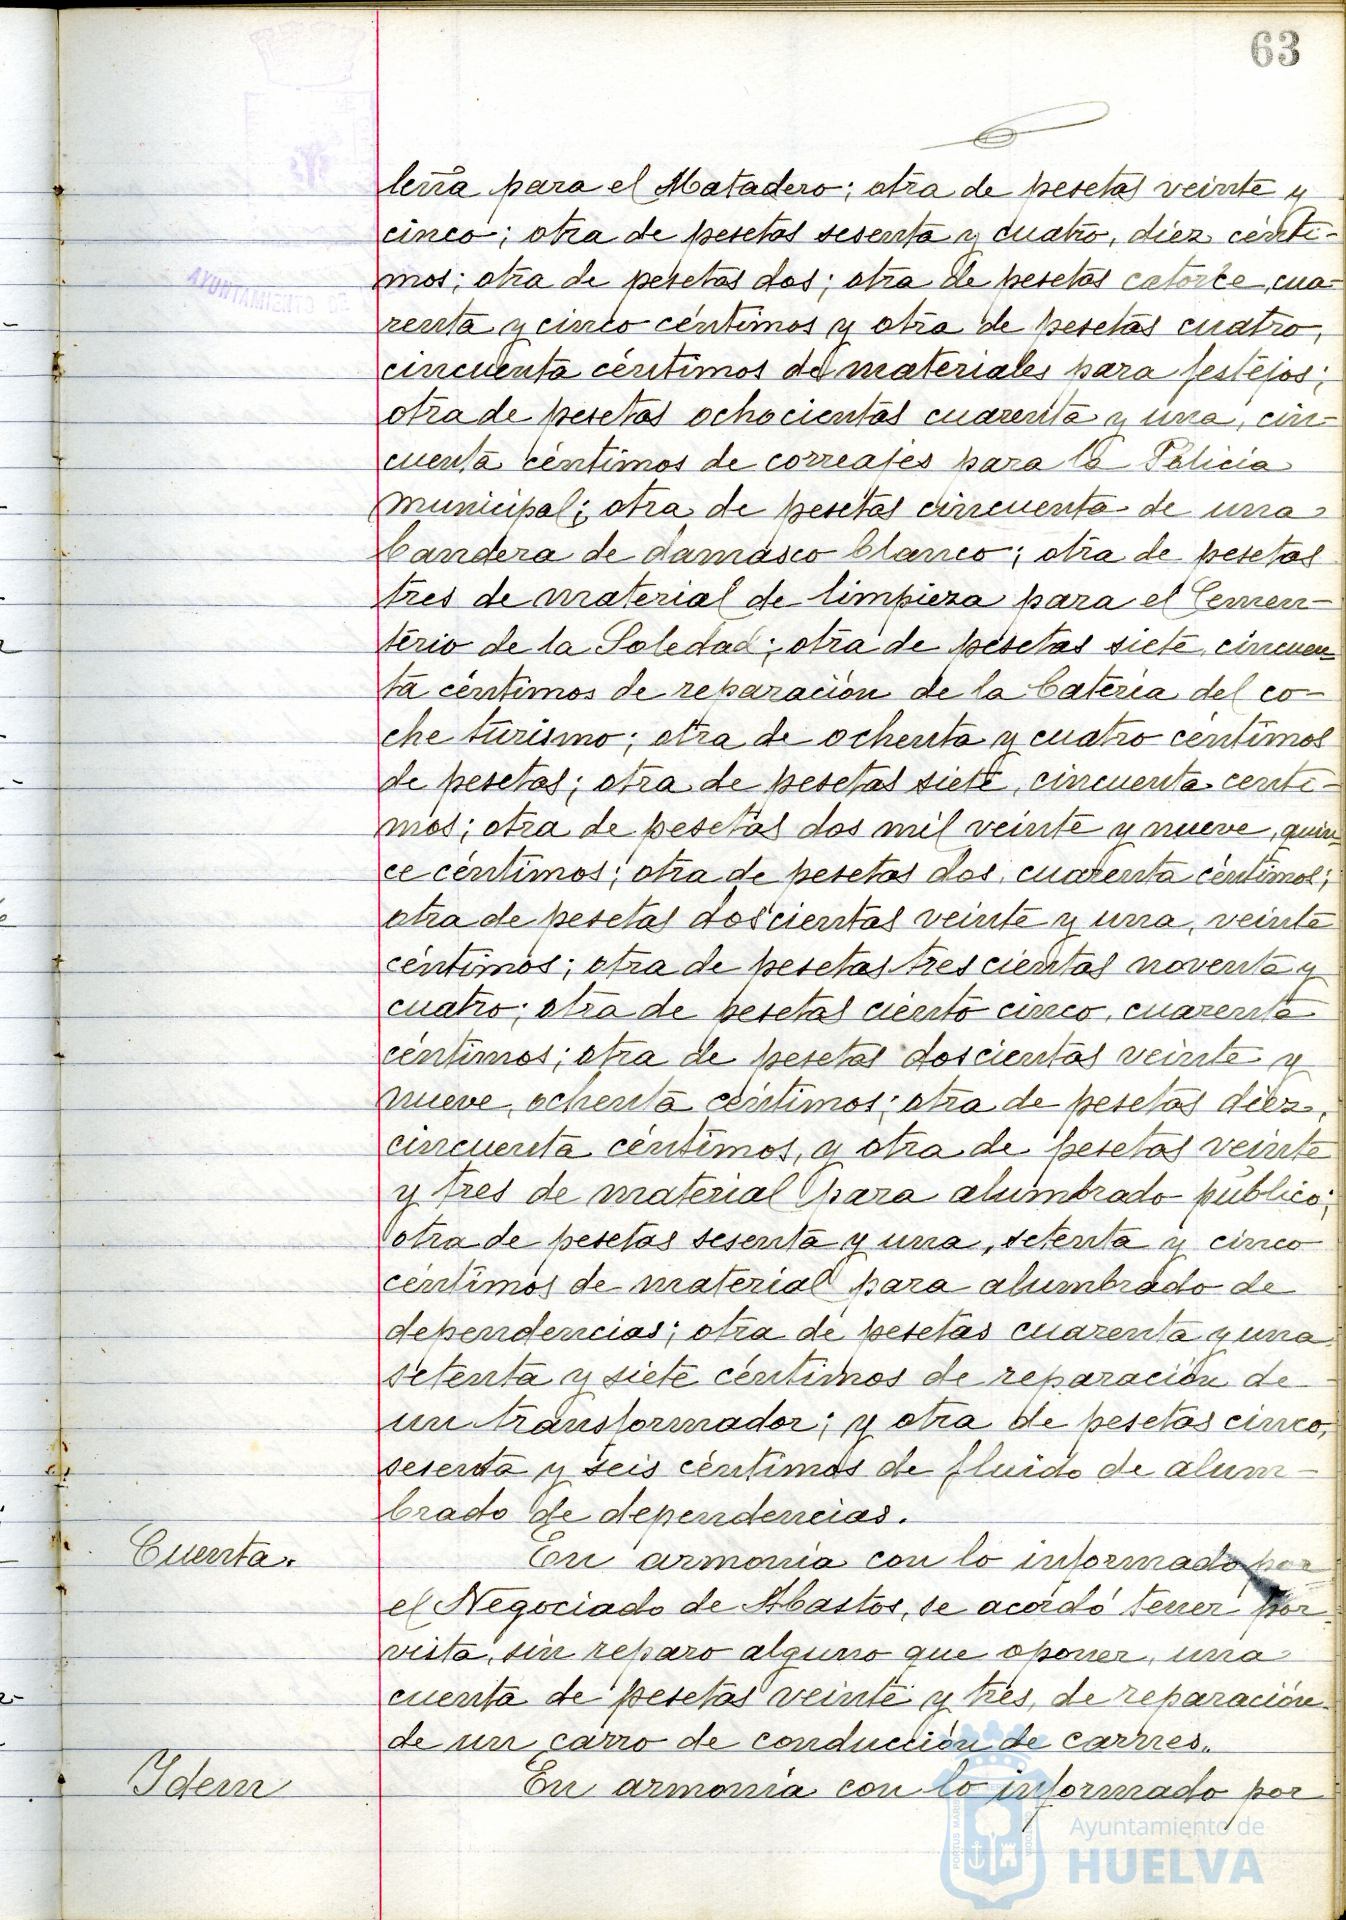 63
leña para el Matadero; otra de pesetas veinte y
cinco; otra de pesetas sesenta y cuatro, diez cénti-
mos; otra de pesetas dos; otra de pesetas catorce, cua-
renta y cinco céntimos y otra de pesetas cuatro,
cincuenta céntimos de materiales para festejos;
otra de pesetas ochocientas cuarenta y una, cin-
cuenta céntimos de correajes para la Policia
municipal; otra de pesetas cincuenta de una
bandera de damasco blanco; otra de pesetas
tres de material de limpieza para el Cemen-
terio de la Soledad; otra de pesetas siete, cincuen-
ta céntimos de reparación de la bateria del co-
che turismo; otra de ochenta y cuatro céntimos
de pesetas; otra de pesetas siete, cincuenta centi-
mos; otra de pesetas dos mil veinte y nueve, quin-
ce céntimos; otra de pesetas dos, cuarenta céntimos;
otra de pesetas doscientas veinte y una, veinte
céntimos; otra de pesetas trescientas noventa y
cuatro; otra de pesetas ciento cinco, cuarenta
céntimos; otra de pesetas doscientas veinte y
nueve, ochenta céntimos; otra de pesetas diez,
cincuenta céntimos, y otra de pesetas veinte
y tres de material para alumbrado público;
otra de pesetas sesenta y una, setenta y cinco
céntimos de material para alumbrado de
dependencias; otra de pesetas cuarenta y una
setenta y siete céntimos de reparación de
un transformador; y otra de pesetas cinco,
sesenta y seis céntimos de fluido de alum-
brado de dependencias.
Cuenta. En armonía con lo informado por
el Negociado de Abastos, se acordó tener por
vista, sin reparo alguno que oponer, una
cuenta de pesetas veinte y tres, de reparación
de un carro de conducción de carnes.
Idem En armonía con lo informado por
AYUNTAMIENTO DE
Ayuntamiento de
HUELVA